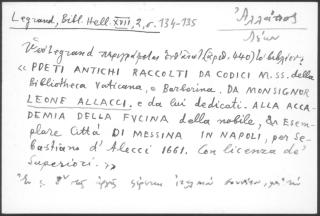 Legrand, Bibl. Hell. XVII, 2, σ. 134-135
Ἀλλάτιος
Λέων
Legrand περιγράφεται (ἀριθ. 440) τὸ βιβλίον:
« POETI ANTICHI RACCOLTI DA CODICI M.SS. della
Bibliotheca Vaticana, e Barberina. DA MONSIGNOR
LEONE ALLACCI, e da lui dedicati. ALLA ACCA-
DEMIA DELLA FVCINA della nobile, & Esem-
plare Città DI MESSINA IN NAPOLI, per Se-
bastiano d'Alecci 1661. Con licenza de'
Superiori. »